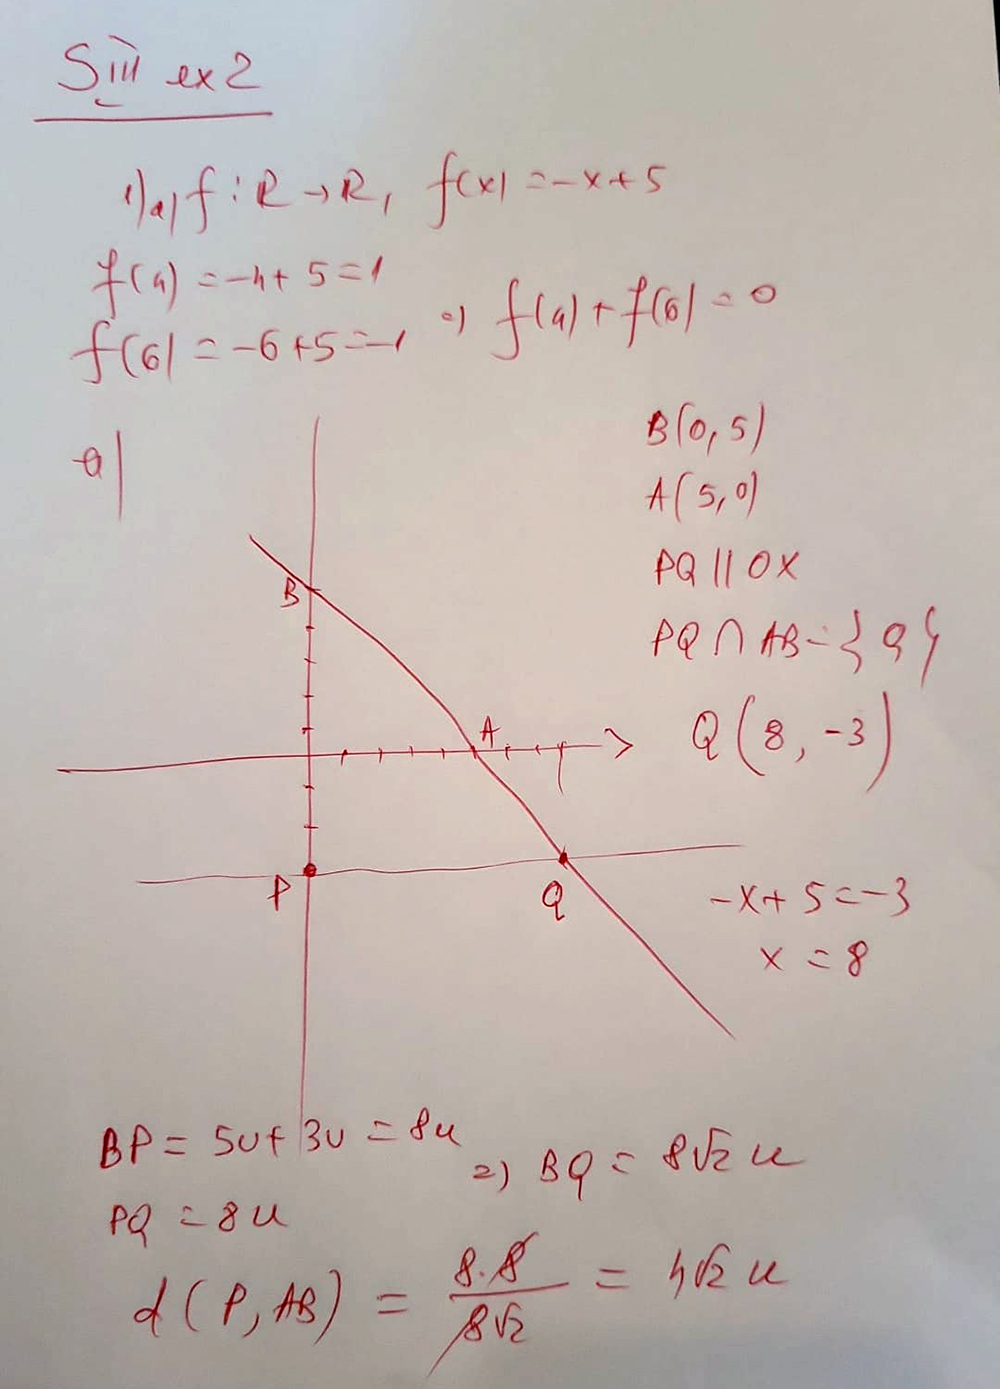 SIII ex 2
1) a) f : R → R, f(x) = -x + 5
f(4) = -4 + 5 = 1
f(6) = -6 + 5 = -1 => f(4) + f(6) = 0
a)
B(0, 5)
A(5, 0)
PQ || OX
PQ ∩ AB = {Q}
Q(8, -3)
B
A
P
Q
-x + 5 = -3
x = 8
BP = 5u + 3u = 8u
PQ = 8u
=> BQ = 8√2 u
d(P, AB) = 8·8 / 8√2 = 4√2 u